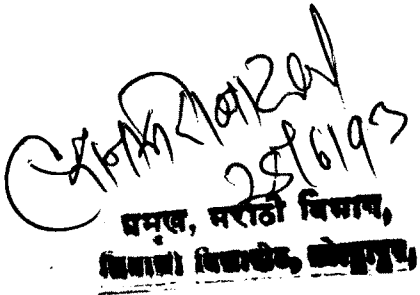 25/6/93
प्रमुख, मराठी विभाग,
शिवाजी विद्यापीठ, कोल्हापूर.